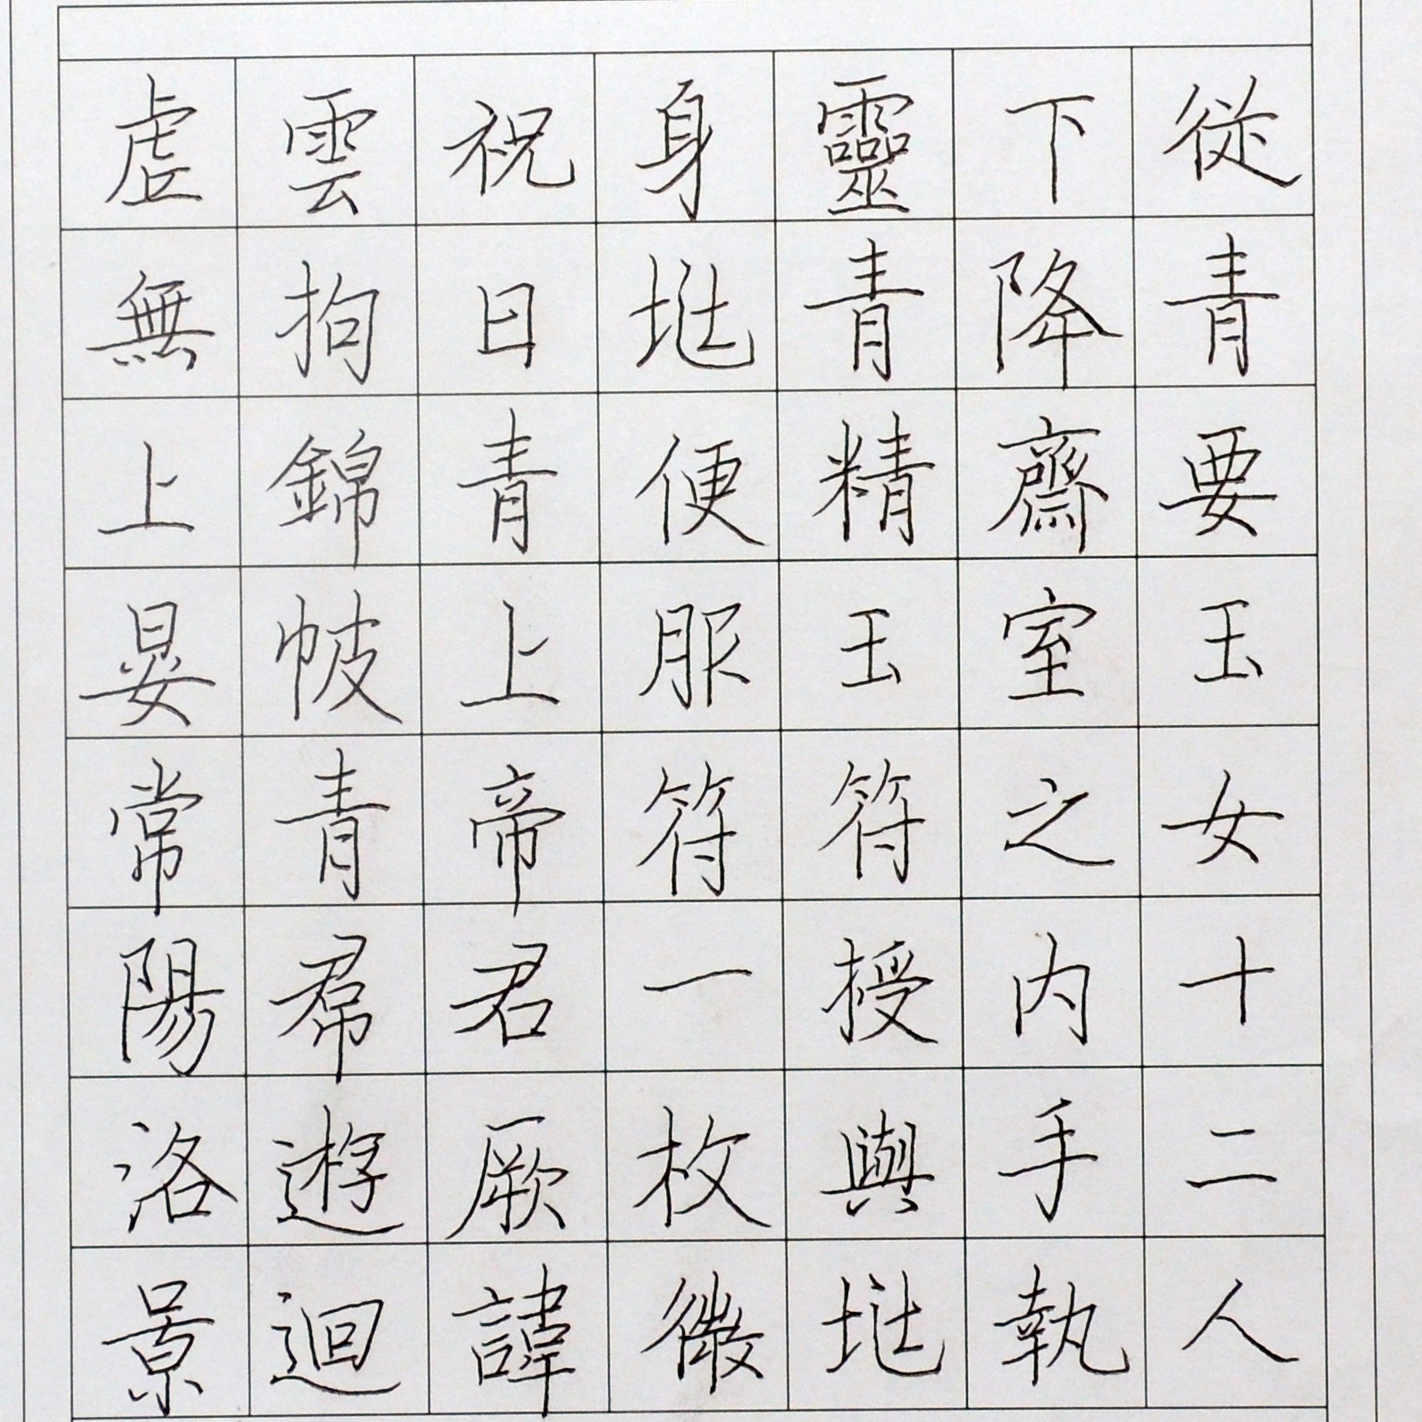 從青要玉女十二人
下降齋室之内手執
靈青精玉符授與兆
身兆便服符一枚微
祝曰青上帝君厥諱
雲拘錦帔青帬遊迴
虛無上晏常陽洛景